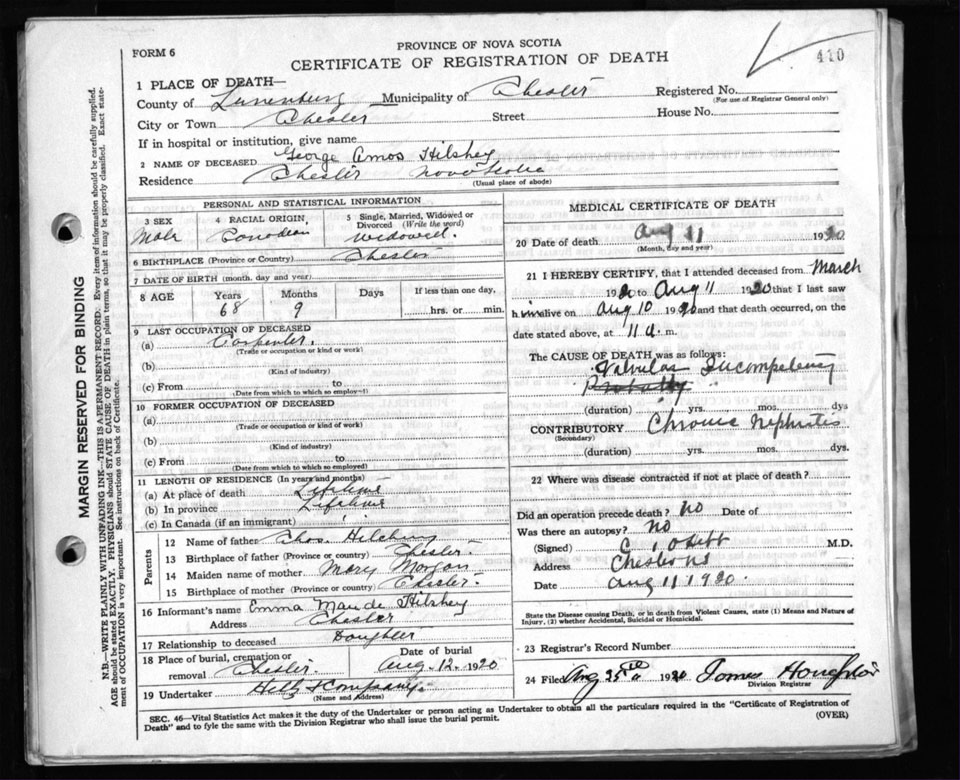 FORM 6
PROVINCE OF NOVA SCOTIA
410
CERTIFICATE OF REGISTRATION OF DEATH
1 PLACE OF DEATH—
County of Lunenburg Municipality of Chester Registered No.
(For use of Registrar General only)
City or Town Chester Street House No.
If in hospital or institution, give name
2 NAME OF DECEASED George Amos Hilshey
Residence Chester Nova Scotia
(Usual place of abode)
PERSONAL AND STATISTICAL INFORMATION
3 SEX 4 RACIAL ORIGIN 5 Single, Married, Widowed or Divorced (Write the word)
Male Canadian Widowed.
6 BIRTHPLACE (Province or Country) Chester
7 DATE OF BIRTH (month, day and year)
8 AGE Years Months Days If less than one day,
68 9 hrs. or min.
9 LAST OCCUPATION OF DECEASED
(a) Carpenter.
(Trade or occupation or kind or work)
(b)
(Kind of industry)
(c) From to
(Date from which to which so employed)
10 FORMER OCCUPATION OF DECEASED
(a)
(Trade or occupation or kind or work)
(b)
(Kind of industry)
(c) From to
(Date from which to which so employed)
11 LENGTH OF RESIDENCE (In years and months)
(a) At place of death Lifetime
(b) In province Lifetime
(c) In Canada (if an immigrant)
Parents
12 Name of father Chas. Hilshey
13 Birthplace of father (Province or country) Chester.
14 Maiden name of mother Mary Morgan
15 Birthplace of mother (Province or country) Chester.
16 Informant's name Emma Maude Hilshey
Address Chester
17 Relationship to deceased Daughter
18 Place of burial, cremation or removal Chester.
Date of burial
Aug. 12. 1920
19 Undertaker & Company
(Name and Address)
MEDICAL CERTIFICATE OF DEATH
20 Date of death Aug 11 1920
(Month, day and year)
21 I HEREBY CERTIFY, that I attended deceased from March
1920 to Aug 11 1920 that I last saw
him alive on Aug 10 1920 and that death occurred, on the
date stated above, at 11 a. m.
The CAUSE OF DEATH was as follows:
Valvular Incompetency
(duration) yrs. mos. dys
CONTRIBUTORY Chronic Nephritis
(Secondary)
(duration) yrs. mos. dys.
22 Where was disease contracted if not at place of death?
Did an operation precede death? No Date of
Was there an autopsy? No
(Signed) C. Hebb M.D.
Address Chester NS
Date Aug 11 1920.
State the Disease causing Death, or in death from Violent Causes, state (1) Means and Nature of
Injury, (2) whether Accidental, Suicidal or Homicidal.
23 Registrar's Record Number
24 Filed Aug 25th 1920 James Houghton
Division Registrar
SEC. 46—Vital Statistics Act makes it the duty of the Undertaker or person acting as Undertaker to obtain all the particulars required in the "Certificate of Registration of
Death" and to fyle the same with the Division Registrar who shall issue the burial permit.
(OVER)
MARGIN RESERVED FOR BINDING
N.B.—WRITE PLAINLY WITH UNFADING INK—THIS IS A PERMANENT RECORD. Every item of information should be carefully supplied.
AGE should be stated EXACTLY. PHYSICIANS should STATE CAUSE OF DEATH in plain terms, so that it may be properly classified. Exact state-
ment of OCCUPATION is very important. See instructions on back of Certificate.